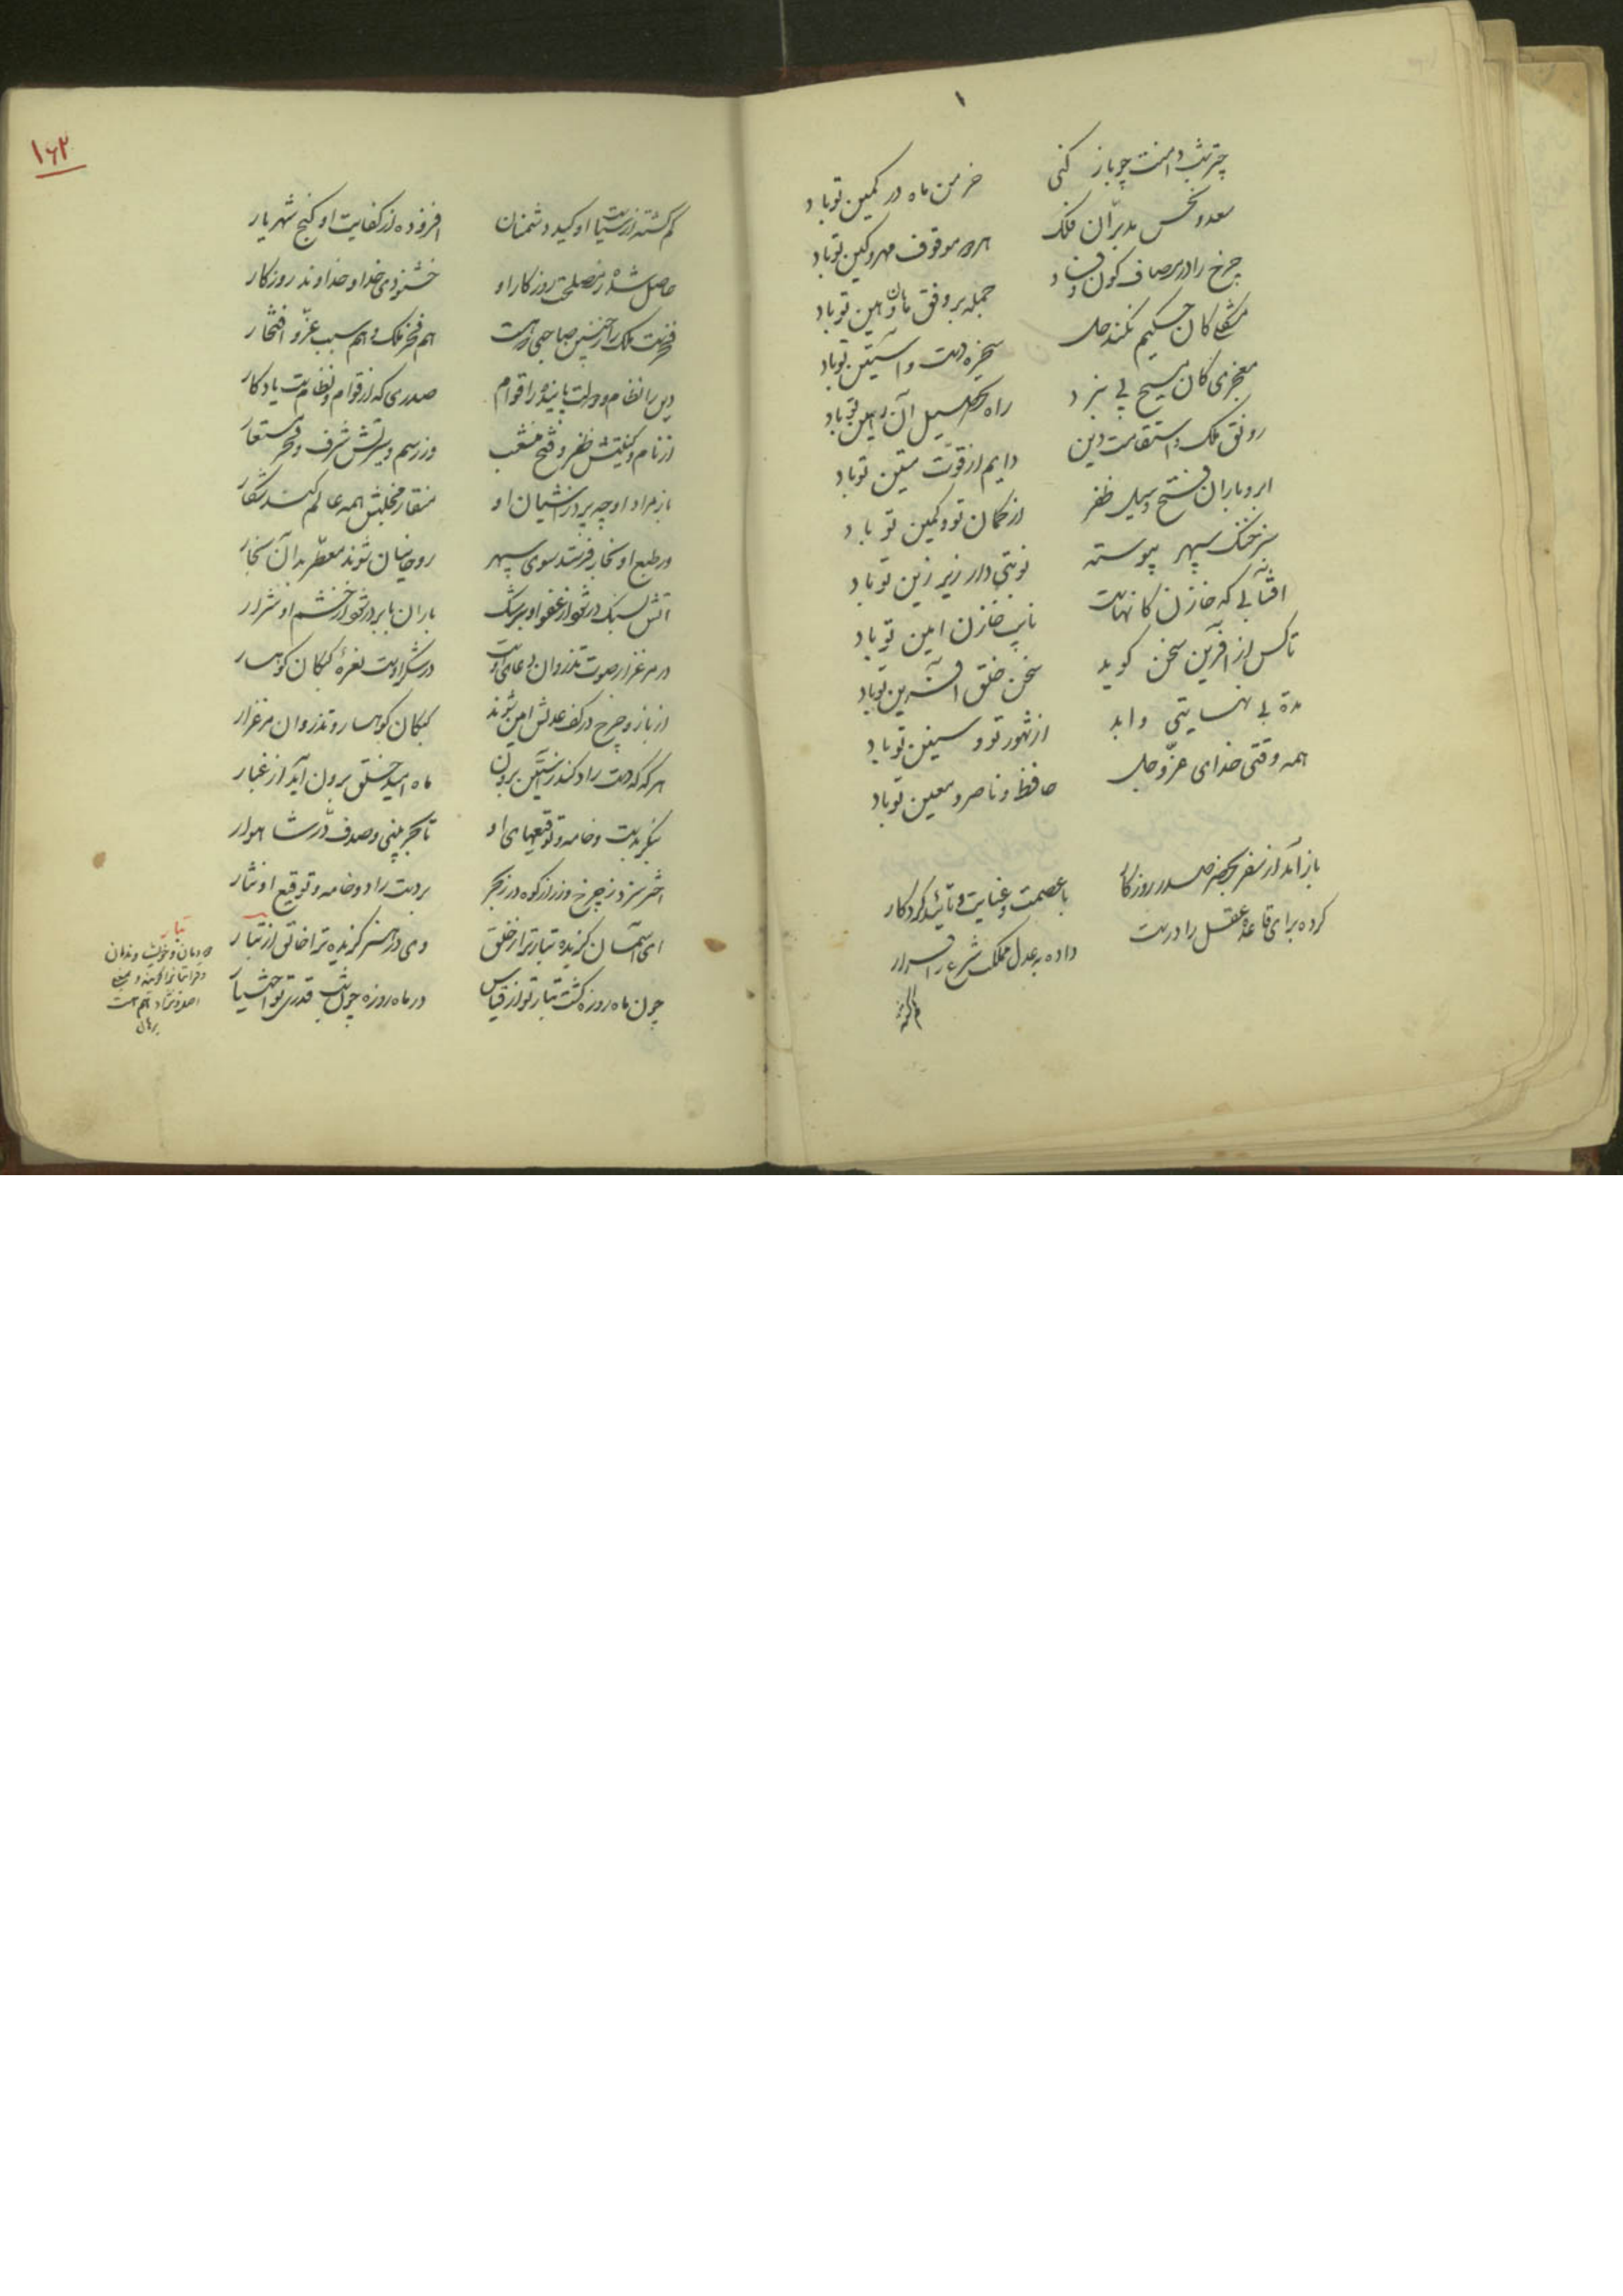 ۱
چتر شب دامنت چو باز کنی
خرمن ماه در کمین تو باد
سعد و نحس مدبران فلک
همه موقوف مهر و کین تو باد
چرخ را در مصاف کون و فساد
جمله بر وفق هان و هین تو باد
مشکلی کان حکیم نکند حل
سخره دست و آستین تو باد
معجزی کان مسیح پی نبرد
راه تحصیل آن تو باد
رونق ملک و استقامت دین
دایم از قوت متین تو باد
ابر و باران فتح و سیل ظفر
از کمان تو و کمین تو باد
سبز خنگ سپهر پیوسته
نوبتی دار زیر زین تو باد
افتابی که خازن کانهاست
نایب خازن امین تو باد
تا کس از آفرین سخن گوید
سخن خلق آفرین تو باد
مدة بی نهایتی و ابد
از شهور تو و سنین تو باد
همه وقتی خدای عزّ و جل
حافظ و ناصر و معین تو باد
باز آمد از سفر بحضر صدر روزگار
با عصمت و عنایت و تأئید کردگار
کرده برای قاعده عقل را درست
داده به عدل مملکت شرع را قرار
۱۶۲
گم گشته از سیاست او کید دشمنان
افزوده از کفایت او گنج شهریار
حاصل شده ز مصلحت روزگار او
خشنودی خدا و خداوند روزگار
فخرست ملک را ز چنین صاحبی و هست
هم فخر ملک و هم سبب عزّ و افتخار
دین را نظام و دولت پاینده را قوام
صدری که از قوام و نظامست یادگار
از نام و کنیتش ظفر و فتح منشعب
وز رسم و سیرتش شرف و فخر مستعار
باز مراد او چو پرد ز آشیان او
منقار و مخلبش همه عالم کند شکار
ور طبع او بخار فرستد سوی سپهر
روحانیان شوند معطّر بدان بخار
آتش بسنگ در شود از عفو او سرشک
باران بابر در شود از خشم او شرار
در مرغزار صوت تذروان دعای اوست
در شکر اوست نعره کبکان کوهسار
از باز و چرخ در کنف عدلش ایمن شوند
کبکان کوهسار و تذروان مرغزار
هر گه که دست راد کند ز آستین برون
ماه امید خلق برون آید از غبار
بنگر بدست و خامه و توقیعهای او
تا بحر بینی و صدف و درّ شاهوار
اختر سزد ز چرخ و زر از کوه و در ز بحر
بر دست راد و خامه و توقیع او نثار
ای آسمان گزیده تبار ترا ز خلق
وی در هنر گزیده ترا خالق از تبار
چون ماه روزه گشت تبار تو از قیاس
در ماه روزه چون شب قدری تو اختیار
تبار
دودمان و خویشاوندان
برهان